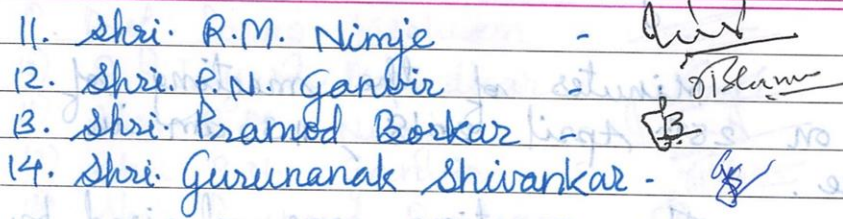 11. Shri. R.M. Nimje -
12. Shri. P.N. Ganvir -
13. Shri. Pramod Borkar
14. Shri. Gurunanak Shivankar -